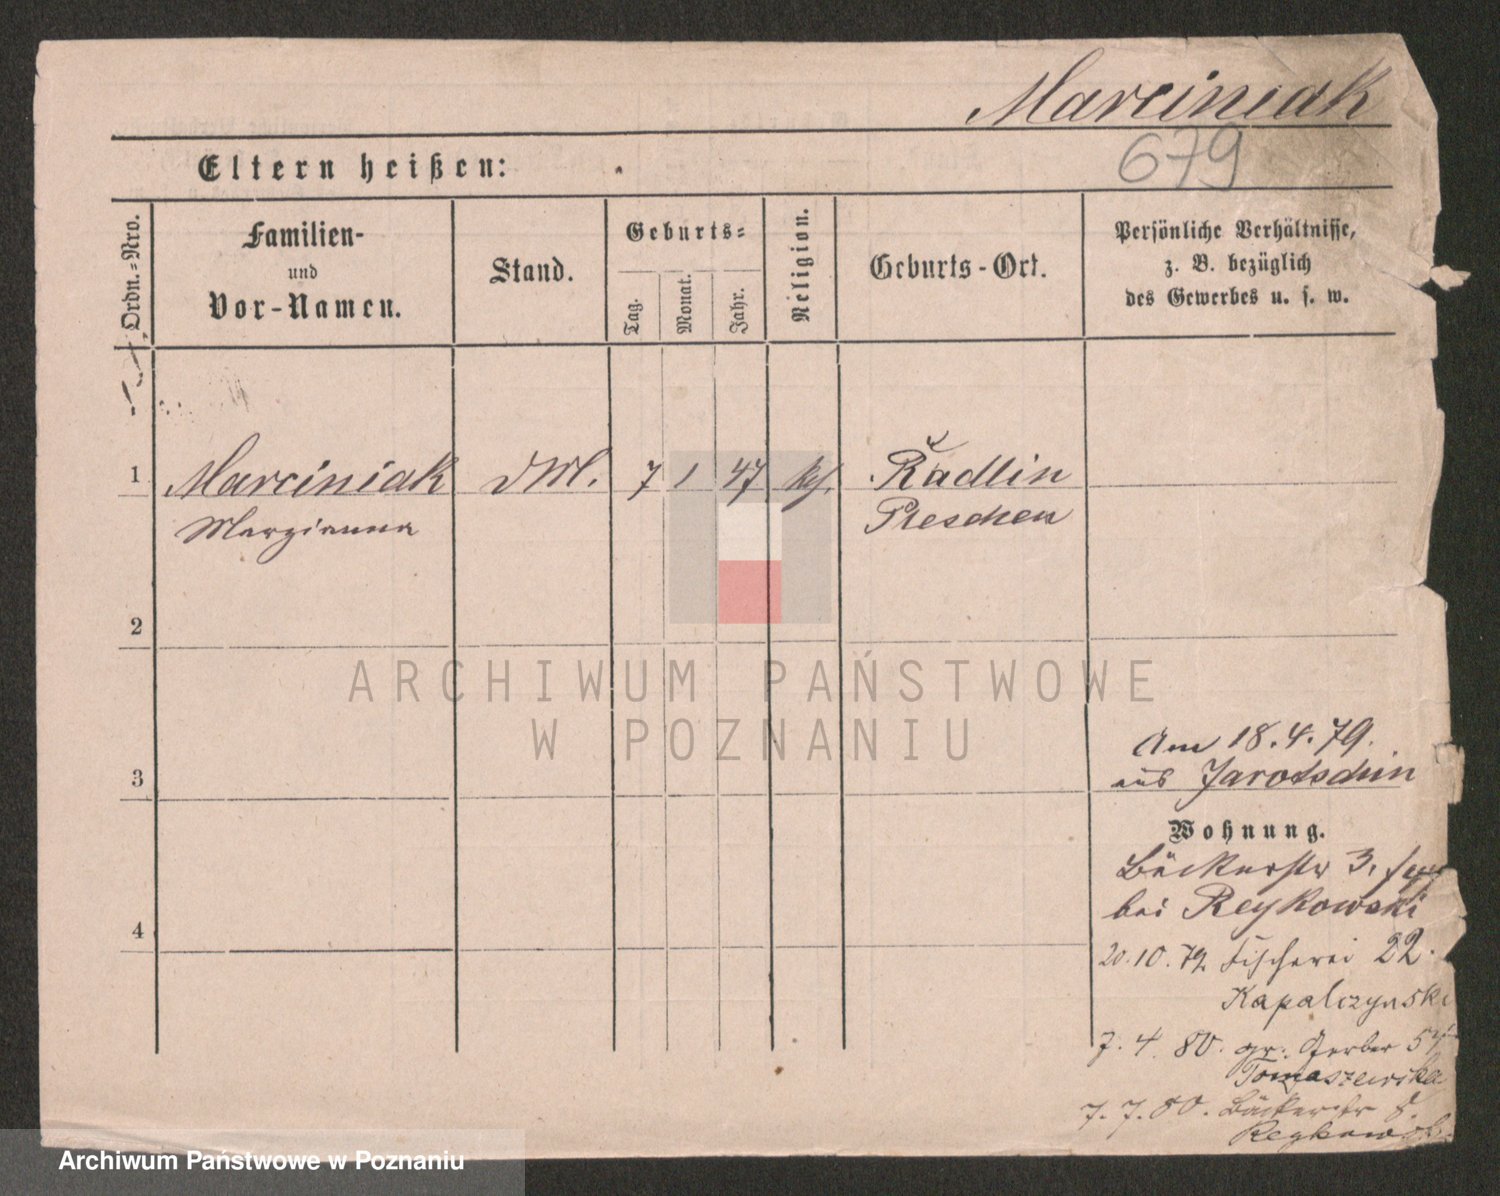 Marciniak
679
Eltern heißen:
Ordn.-Nro.
Familien-
und
Vor-Namen.
Stand.
Geburts-
Tag.
Monat.
Jahr.
Religion.
Geburts-Ort.
Persönliche Verhältnisse,
z. B. bezüglich
des Gewerbes u. s. w.
1 Marciniak 7 1 47 Radlin
Maryianna Pleschen
2
ARCHIWUM PAŃSTWOWE
W POZNANIU
Am 18.4.79.
aus Jarotschin
3
Wohnung.
Bäckerstr 3.
bei Reykowski
4
20.10.79 Fischerei 22.
Kapalczynski
7.4.80. gr. Gerber
Tomaszewska
7.7.80. Bäckerstr 8.
Reykowski
Archiwum Państwowe w Poznaniu